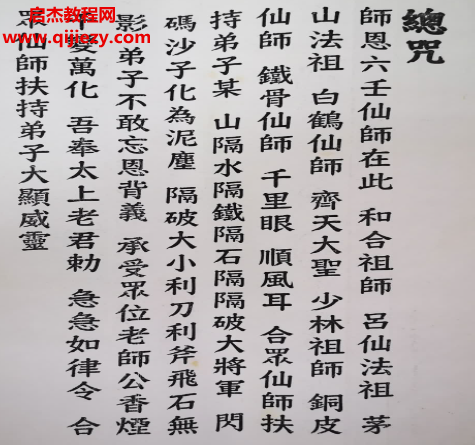 啟杰教程网
www.qijiezy.com
總咒
師恩六壬仙師在此 和合祖師 呂仙法祖 茅
山法祖 白鶴仙師 齊天大聖 少林祖師 銅皮
仙師 鐵骨仙師 千里眼 順風耳 合眾仙師扶
持弟子某 山隔水隔鐵隔石隔隔破大將軍 閃
碼沙子化為泥塵 隔破大小利刀利斧飛石無
影 弟子不敢忘恩背義 承受眾位老師公香煙
千變萬化 吾奉太上老君勅 急急如律令 合
眾仙師扶持弟子大顯威靈